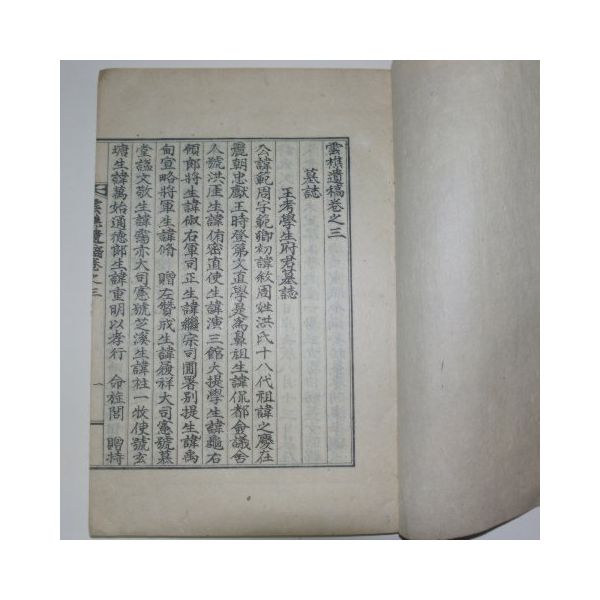 雲樵遺稿卷之三
墓誌
王考學生府君墓誌
公諱範周字範卿初諱敘周姓洪氏十八代祖諱之慶在
麗朝忠獻王時登第文直學是爲鼻祖生諱侃都僉議舍
人號洪厓生諱侑密直使生諱演三館大提學生諱龜右
領郎將生諱俶右軍司正生諱繼宗司圃署別提生諱禹
甸宣略將軍生諱脩 贈左贊成生諱履祥大司憲號慕
堂諡文敬生諱霶亦大司憲號芝溪生諱柱一牧使號玄
塘生諱萬始通德郎生諱重明以孝行 命旌閭 贈持
雲樵遺稿卷之三 一